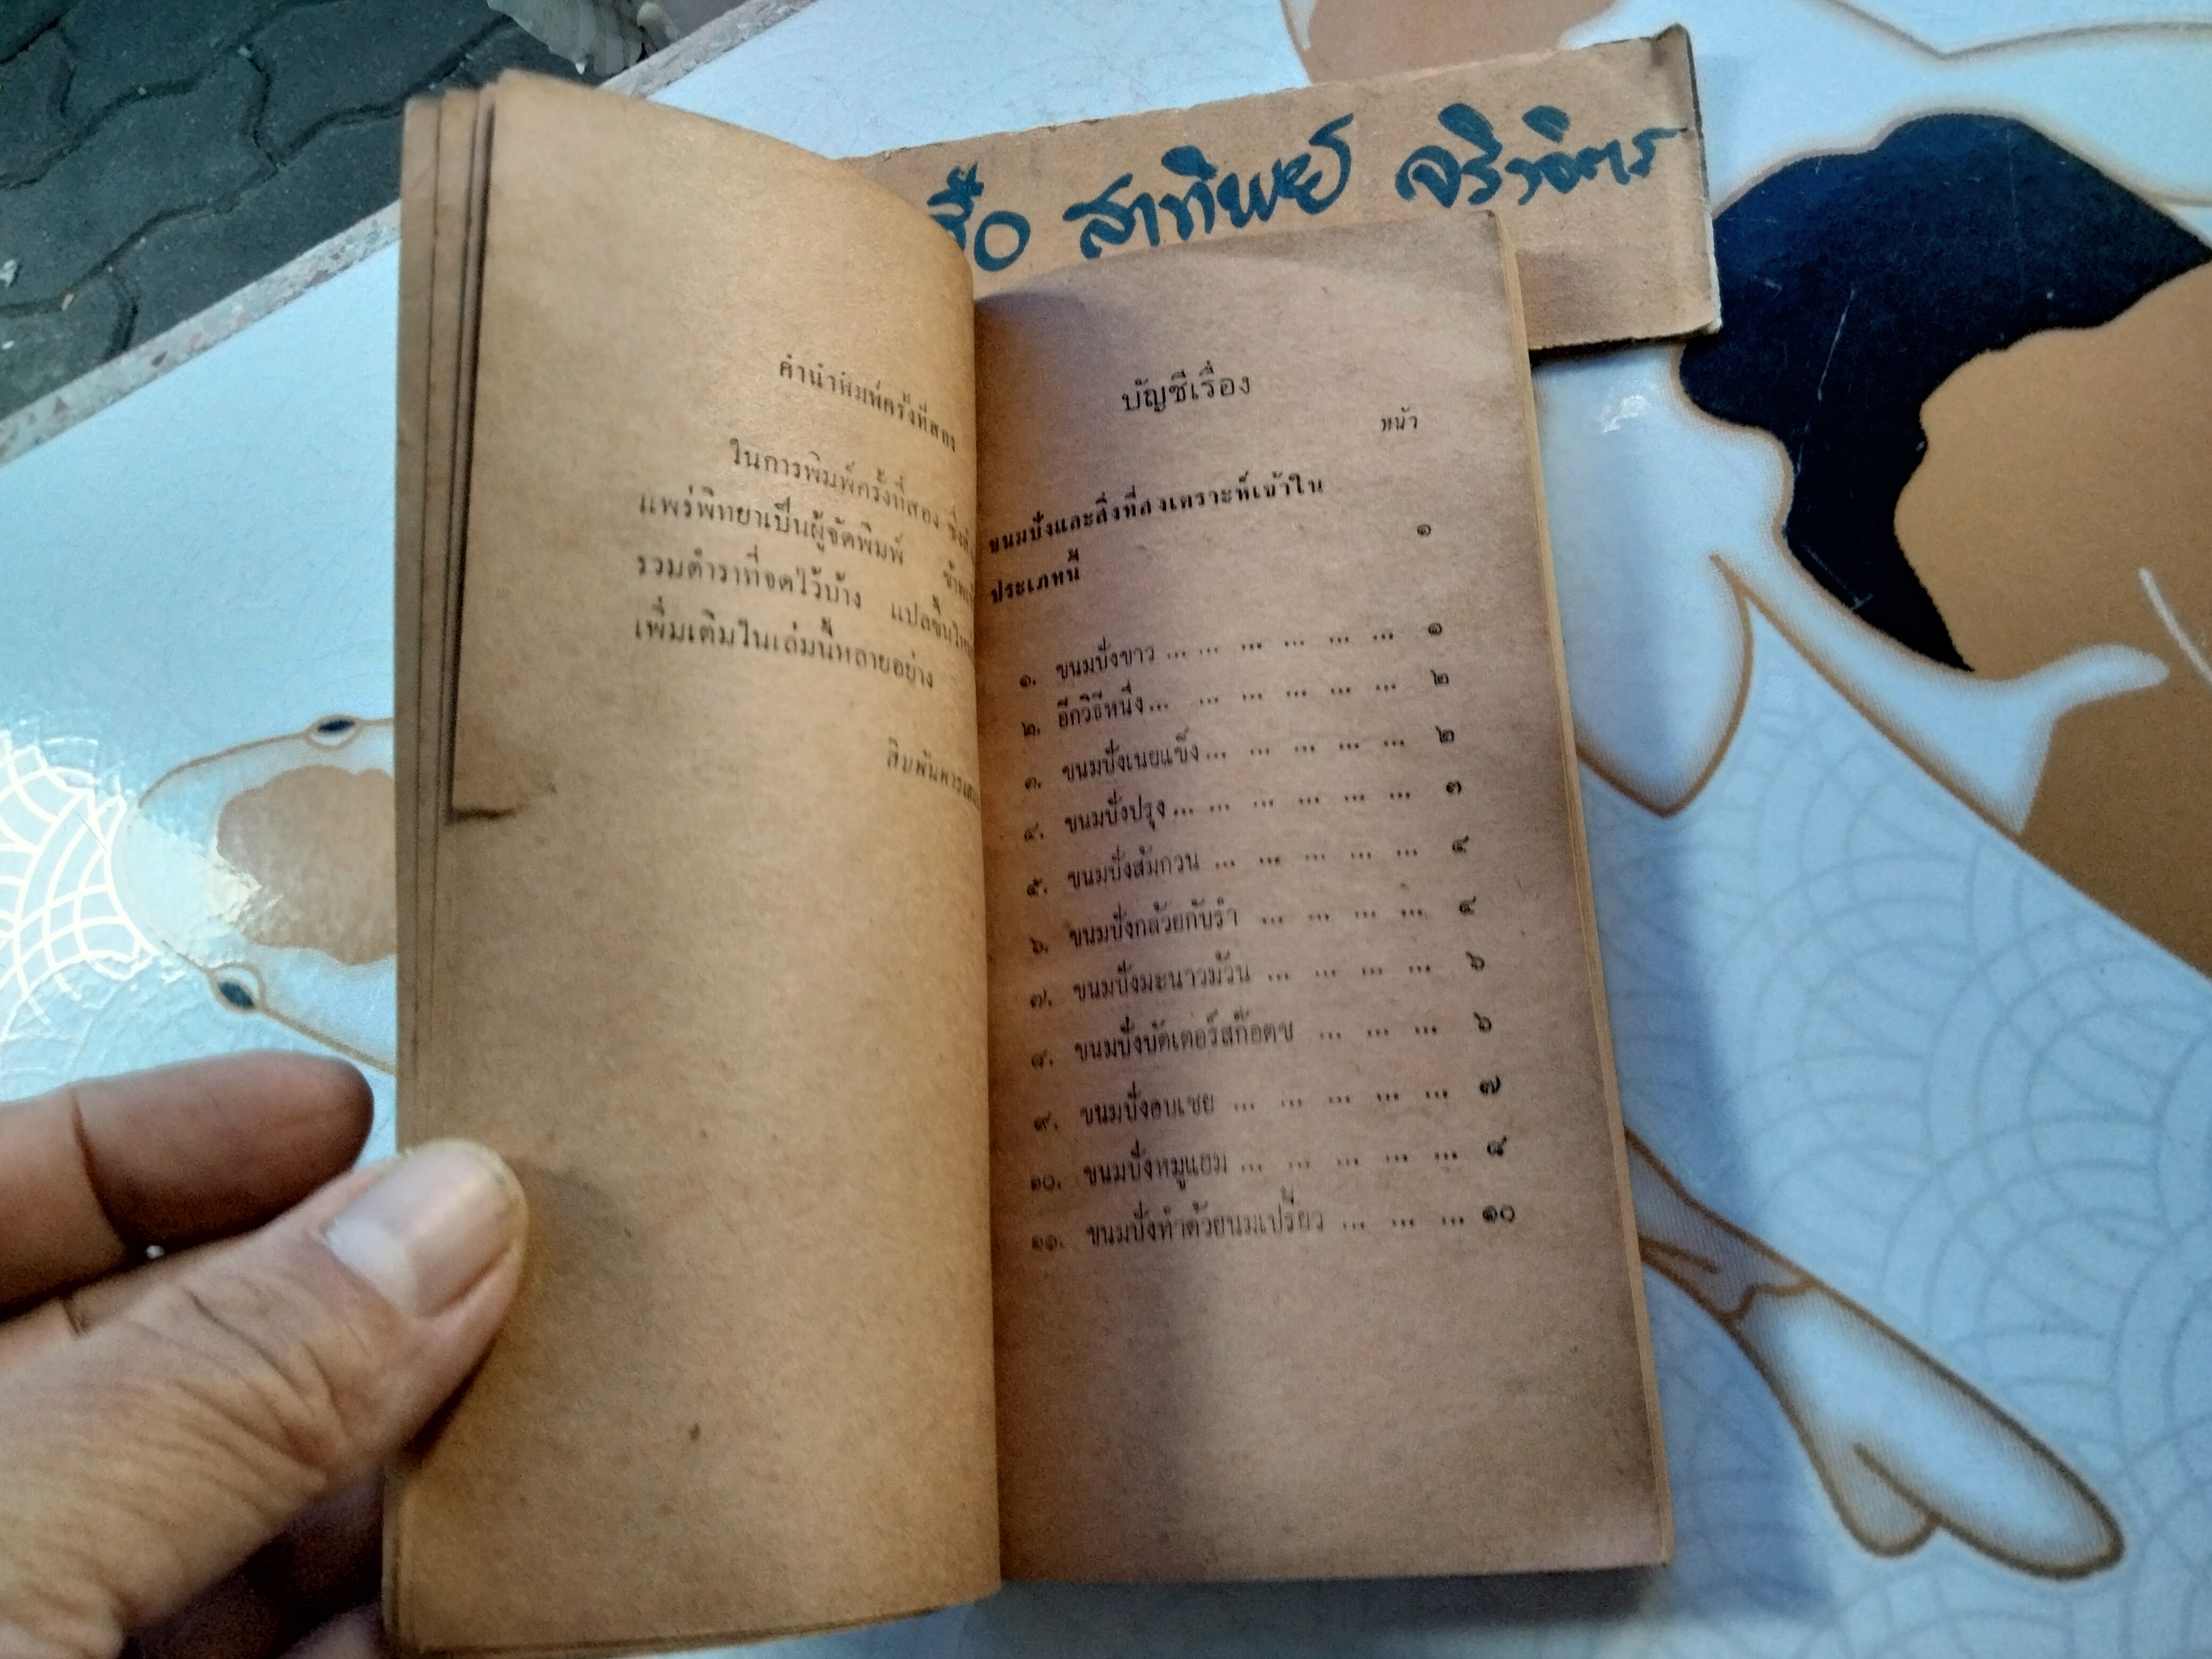 สือ สาทิพย์ จริงจิตร
คำนำพิมพ์ครั้งที่สอง
ในการพิมพ์ครั้งที่สอง ซึ่ง
แพร่พิทยาเป็นผู้จัดพิมพ์
รวมตำราที่จดไว้บ้าง แปลขึ้นใหม่
เพิ่มเติมในเล่มนี้หลายอย่าง
บัญชีเรื่อง
หน้า
ขนมปังและสิ่งที่สงเคราะห์เข้าใน
ประเภทนี้ ๑
๑. ขนมปังขาว ... ... ... ... ... ... ๑
๒. อีกวิธีหนึ่ง ... ... ... ... ... ... ๒
๓. ขนมปังเนยแข็ง ... ... ... ... ... ๒
๔. ขนมปังปรุง ... ... ... ... ... ... ๓
๕. ขนมปังส้มกวน ... ... ... ... ... ๔
๖. ขนมปังกล้วยกับรำ ... ... ... ... ๔
๗. ขนมปังมะนาวม้วน ... ... ... ... ๖
๘. ขนมปังบัตเตอร์สก๊อตช ... ... ... ๖
๙. ขนมปังอบเชย ... ... ... ... ... ๗
๑๐. ขนมปังหมูแฮม ... ... ... ... ... ๘
๑๑. ขนมปังทำด้วยนมเปรี้ยว ... ... ... ๑๐